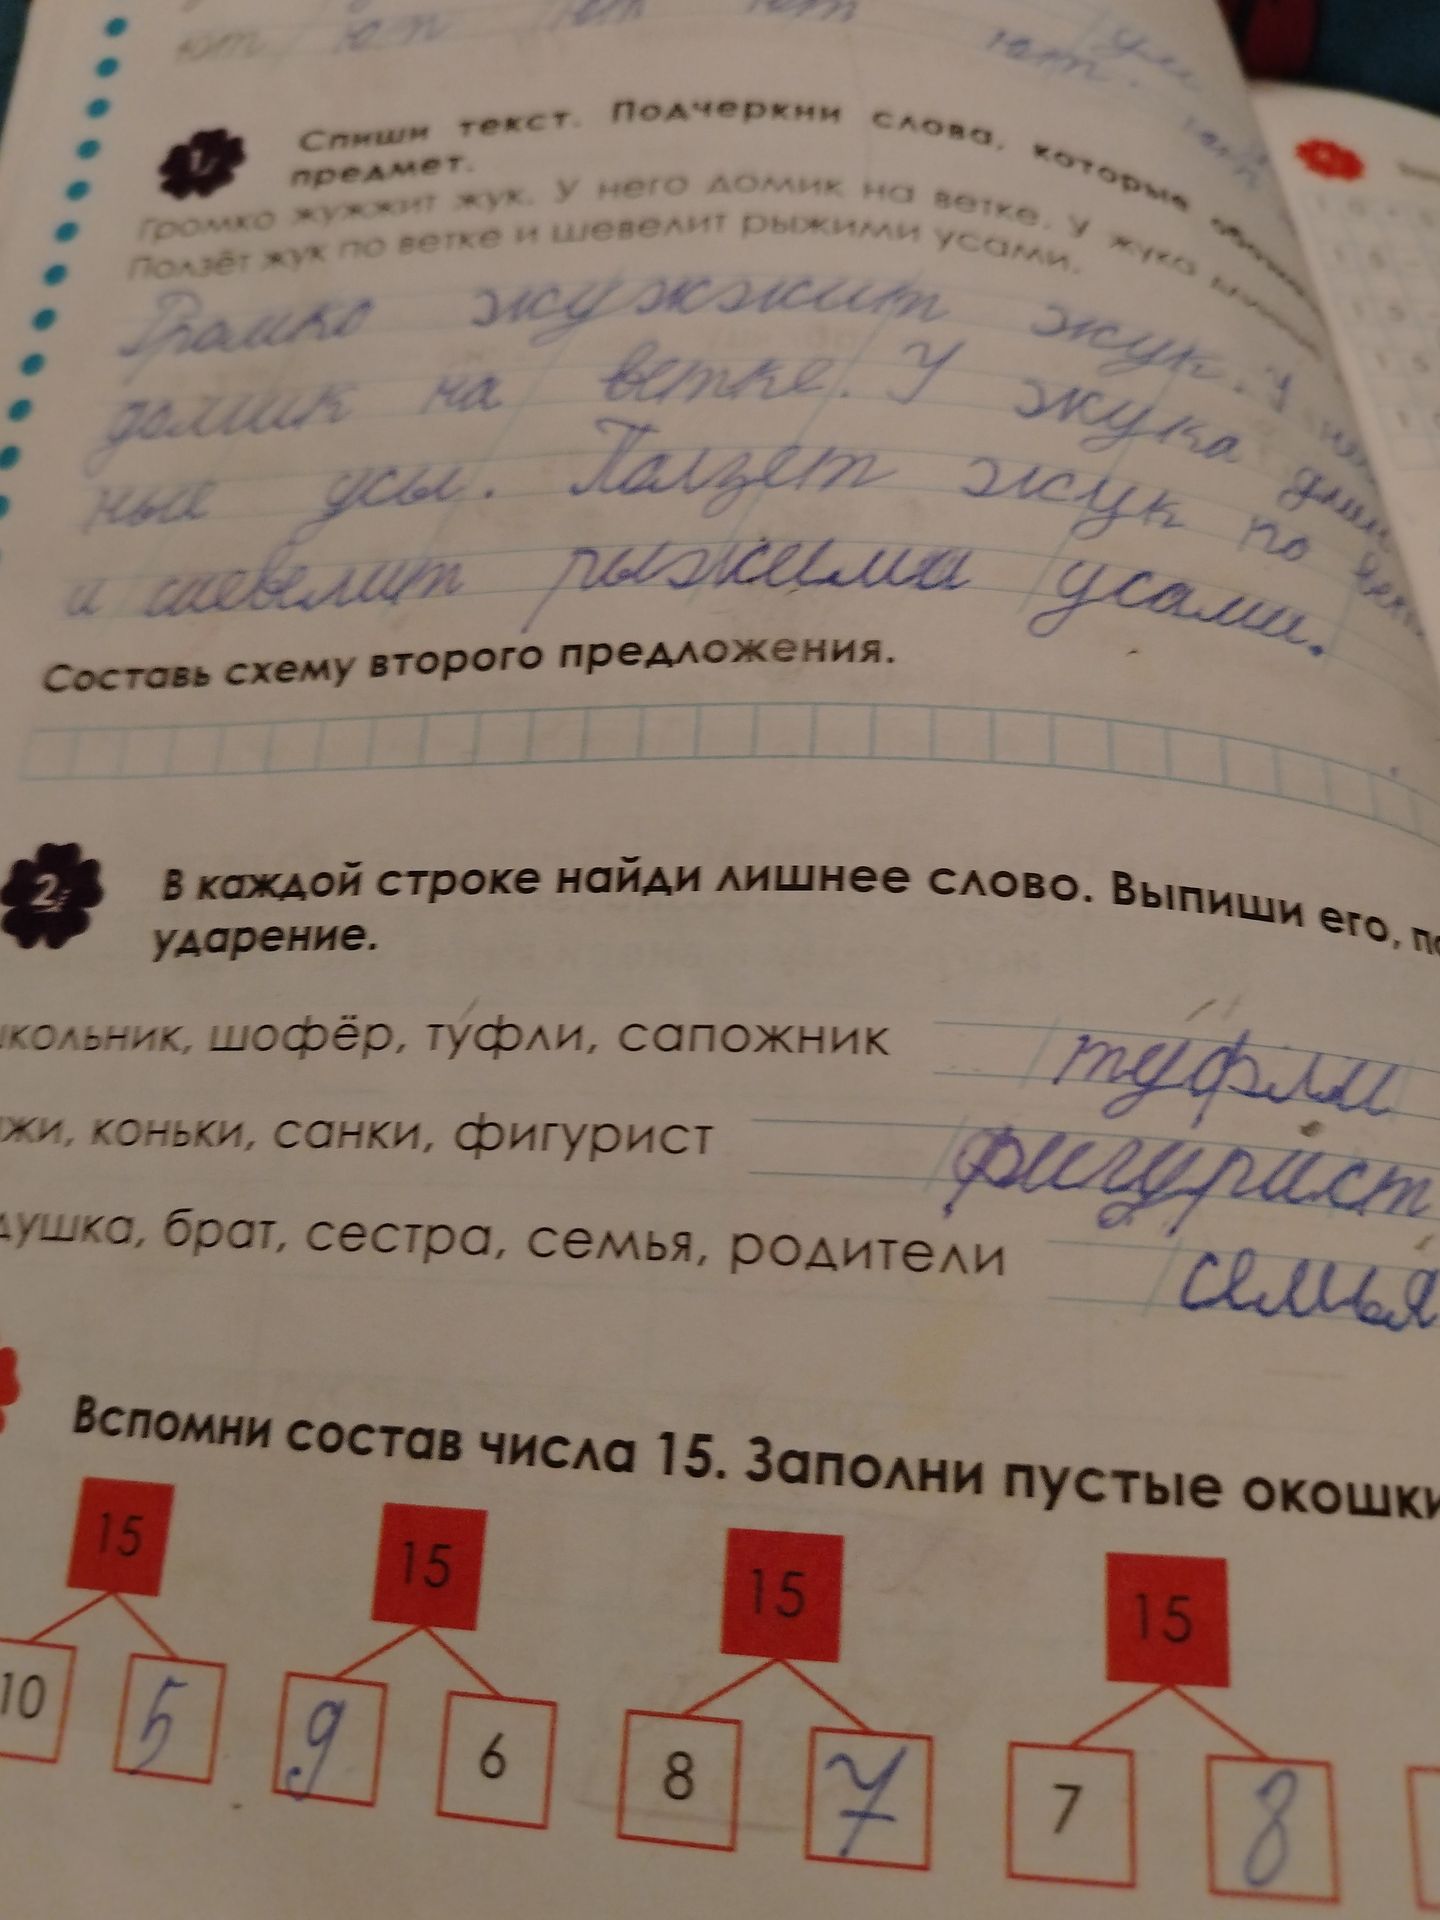 ют юп ют ют ют.
1. Спиши текст. Подчеркни слова, которые
предмет.
Громко жужжит жук. У него домик на ветке. У жука
Ползёт жук по ветке и шевелит рыжими усами.
Громко жужжит жук. У
домик на ветке. У жука
ные усы. Ползет жук по
и шевелит рыжими усами.
Составь схему второго предложения.
2. В каждой строке найди лишнее слово. Выпиши его,
ударение.
школьник, шофёр, ту́фли, сапожник ту́фли
жи, коньки, санки, фигурист фигури́ст
душка, брат, сестра, семья, родители семья́
Вспомни состав числа 15. Заполни пустые окошки
15 15 15 15
10 5 9 6 8 7 7 8